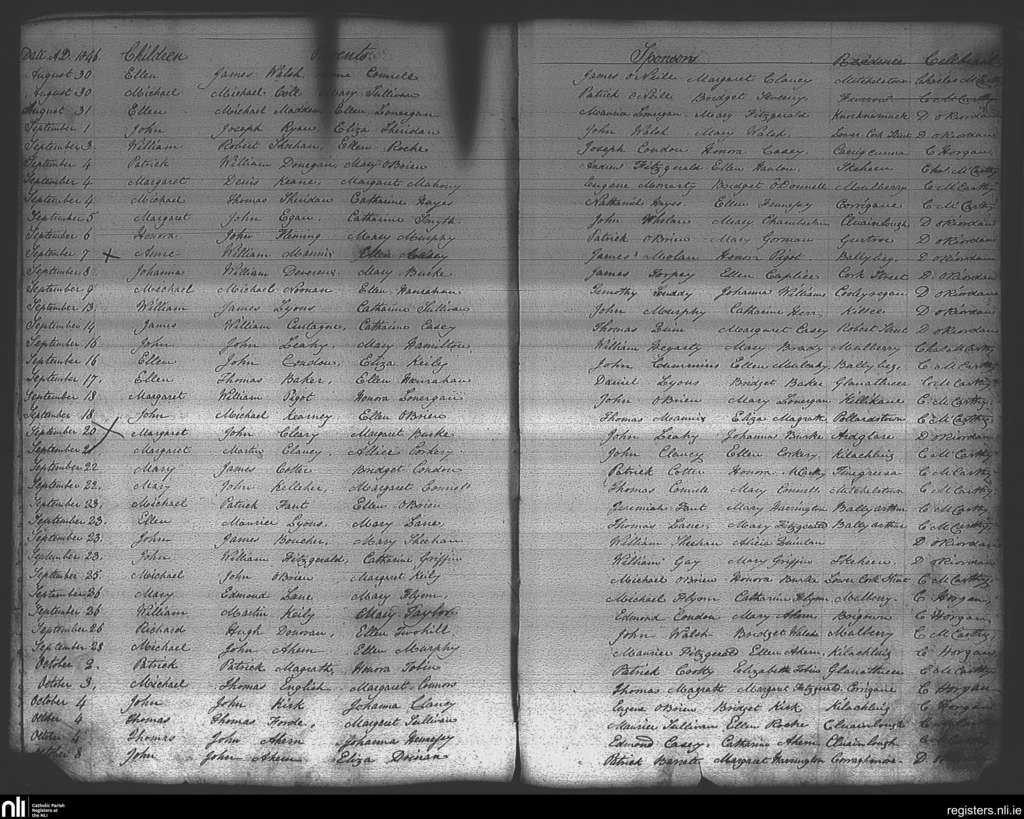 Date A.D. 1846. Children Parents Sponsors Residence Celebrant
August 30 Ellen James Walsh, Connell James O'Neille Margaret Clancy Mitchelstown Charles McCarthy
August 30 Michael Michael Cott Mary Sullivan Patrick O'Neille Bridget C McCarthy
August 31 Ellen Michael Madden Ellen Lonergan Lonergan, Mary Fitzgerald D O'Riordan
September 1 John Joseph Ryan, Eliza Sheridan John Walsh Mary Walsh Lower Cork Street D O'Riordan
September 3, William Robert Sheehan, Ellen Roche Joseph Condon Honora Casey C Horgan
September 4 Patrick William Donegan, Mary O'Brien Andrew Fitzgerald Ellen Hanlon Skeheen Chas. McCarthy
September 4. Margaret Denis Keane, Margaret Mahony Eugene Moriarty Bridget O'Donnell Mulberry C McCarthy
September 4. Michael Thomas Sheridan Catharine Hayes Nathaniel Hayes Ellen Corrigane C McCarthy
September 5 Margaret John Egan, Catharine Smyth John Whelan Mary Chamberlain D O'Riordan
September 6 Honora John Fleming Mary Murphy Patrick O'Brien Mary Gorman D O'Riordan
September 7 Anne William Mannix Ellen Casey James Nolan Honor Pigot Ballybeg D O'Riordan
September 8. Johanna William Devereux Mary Burke James Torpey Ellen Caplice Cork Street D O'Riordan
September 9 Michael Michael Noonan Ellen Hanrahan Timothy Johanna Williams D O'Riordan
September 13. William James Lyons Catharine Sullivan John Murphy Catharine Kerr, D O'Riordan
September 14 James William Catharine Casey Thomas Quin Margaret Casey Robert Street D O'Riordan
September 16 John John Leahy Mary Hamilton William Hegarty Mary Brady Mulberry Chas McCarthy
September 16 Ellen John Condon, Eliza Keily John Cummins Ellen Mulcahy Ballybeg C McCarthy
September 17, Ellen Thomas Baker, Ellen Hanrahan Daniel Lyons Bridget Baker Glenatlucer C McCarthy
September 18 Margaret William Pigot Honora Lonergan John O'Brien Mary Lonergan C McCarthy
September 18, John Michael Kearney Ellen O'Brien Thomas Mannix Eliza Magrath Pollardstown C McCarthy
September 20 Margaret John Cleary Margaret Burke John Leahy Johanna Burke D O'Riordan
September 21 Margaret Martin Clancy Allice Corkery John Clancy Ellen Corkery Kilachluig C McCarthy
September 22 Mary James Cotter Bridget Condon Patrick Cotter Honora McCarthy C McCarthy
September 22, Mary John Kelleher, Margaret Connell Thomas Connell Mary Connell Mitchelstown C McCarthy
September 23, Michael Patrick Fant Ellen O'Brien Jeremiah Fant Mary Harrington Ballyarthur C McCarthy
September 23. Ellen Maurice Lyons, Mary Lane Thomas Lane, Mary Fitzgerald Ballyarthur C McCarthy
September 23 John James Boucher, Mary Sheehan William Sheehan Alicia Quinlan D O'Riordan
September 23. John William Fitzgerald, Catharine Griffin William Gay Mary Griffin Skeheen D O'Riordan
September 25. Michael John O'Brien Margaret Keily Michael O'Brien Honora Burke Lower Cork Street C McCarthy
September 26 Mary Edmond Lane Mary Flynn Michael Flynn Catharine Flynn Mulberry C Horgan
September 26 William Martin Keily Mary Taylor Edmond Condon Mary Ahern Brigown C Horgan
September 26 Richard Hugh Donovan, Ellen Twohill John Walsh Bridget Walsh Mulberry C McCarthy
September 28 Michael John Ahern Ellen Murphy Maurice Fitzgerald Ellen Ahern, Kilachluig C Horgan
October 2. Patrick Patrick Magrath, Honora Tobin Patrick Elizabeth Tobin Glenatlucer C McCarthy
October 3, Michael Thomas English Margaret Connors Thomas Magrath Margaret Fitzgerald Corrigane C Horgan
October 4 John John Kirk Johanna Clancy Eugene O'Brien Bridget Kirk Kilachluig C Horgan
October 4 Thomas Thomas Forde, Margaret Sullivan Maurice Sullivan Ellen Roche
October 4 Thomas John Ahern Johanna Hennessy Edmond Casey, Catharine Ahern
October 8 John John Ahern Eliza Doonan Patrick Barrett Margaret Harrington D O'Riordan
nli Catholic Parish Registers at the NLI
registers.nli.ie